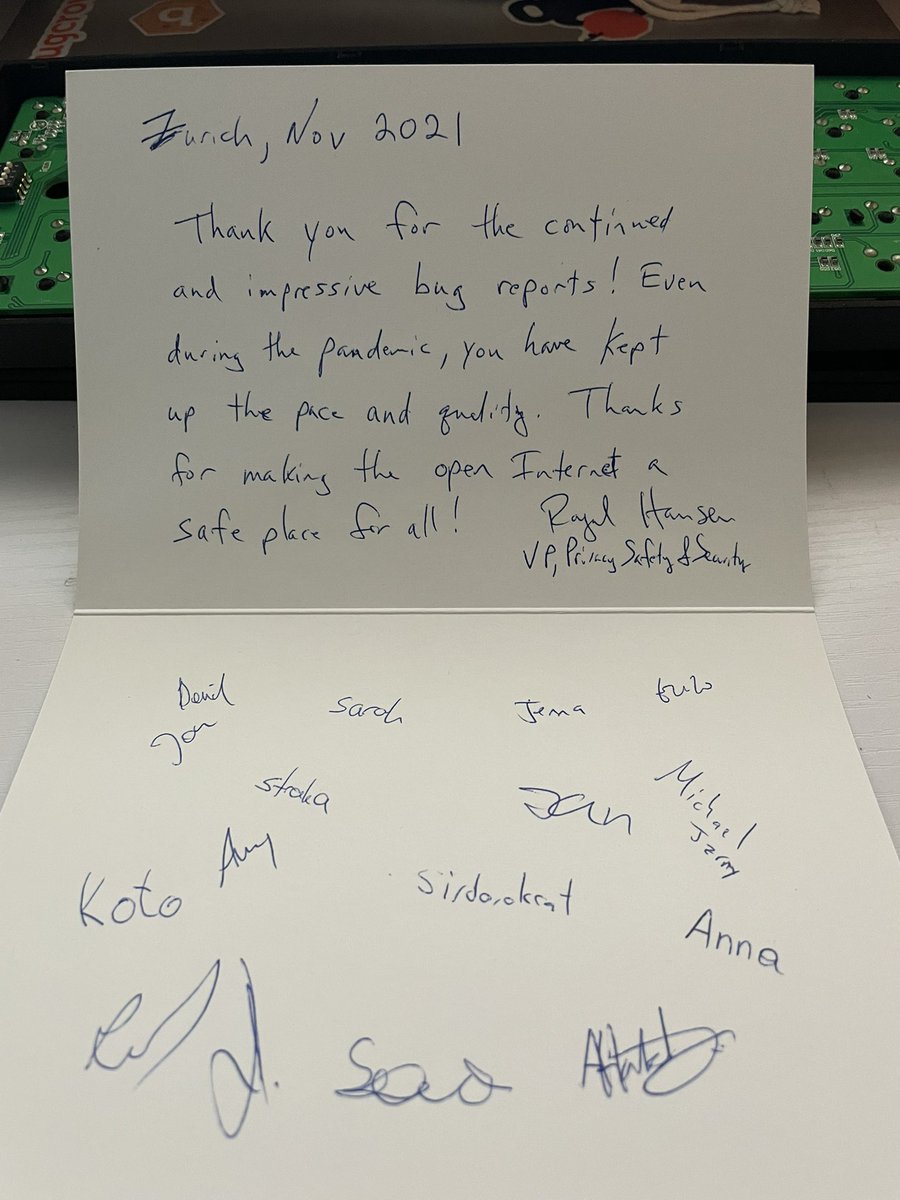 Zurich, Nov 2021
Thank you for the continued
and impressive bug reports! Even
during the pandemic, you have kept
up the pace and quality. Thanks
for making the open Internet a
safe place for all!
Royal Hansen
VP, Privacy Safety & Security
David
Sarah
Jenna
Jon
straka
Jan
Michael
Jezny
Amy
Koto
Sirdarokcat
Anna